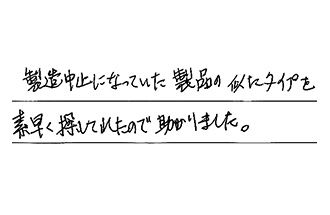 製造中止になっていた製品の似たタイプを
素早く探してくれたので助かりました。